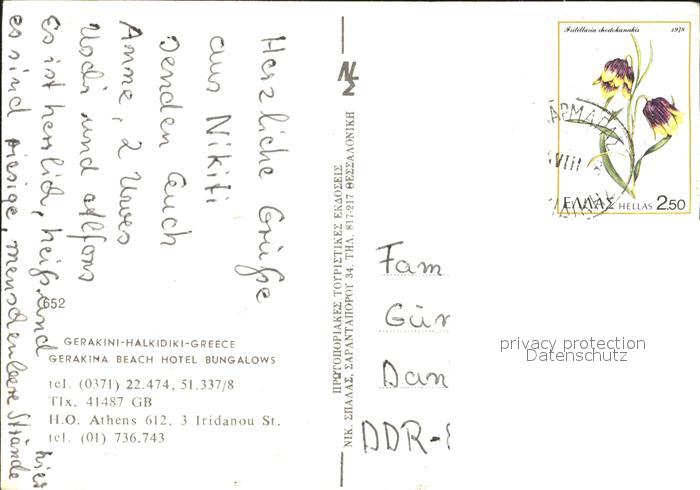 Herzliche Grüße
aus Nikiti
senden Euch
Anne, 2 Uwes
Uschi und Alfons
Es ist herrlich, heiß und
es sind riesige, menschenleere Strände
hier
652
GERAKINI-HALKIDIKI-GREECE
GERAKINA BEACH HOTEL BUNGALOWS
tel. (0371) 22.474, 51.337/8
Tlx. 41487 GB
H.O. Athens 612, 3 Iridanou St.
tel. (01) 736.743
ΠΡΩΤΟΠΟΡΙΑΚΕΣ ΤΟΥΡΙΣΤΙΚΕΣ ΕΚΔΟΣΕΙΣ
ΝΙΚ. ΣΠΑΛΑΣ, ΣΑΡΑΝΤΑΠΟΡΟΥ 34, ΤΗΛ. 817-217 ΘΕΣΣΑΛΟΝΙΚΗ
Fritillaria rhodokanakis 1978
ΕΛΛΑΣ HELLAS 2.50
ΑΡΜΑ
VIII
Fam
Gün
Dan
DDR-
privacy protection
Datenschutz